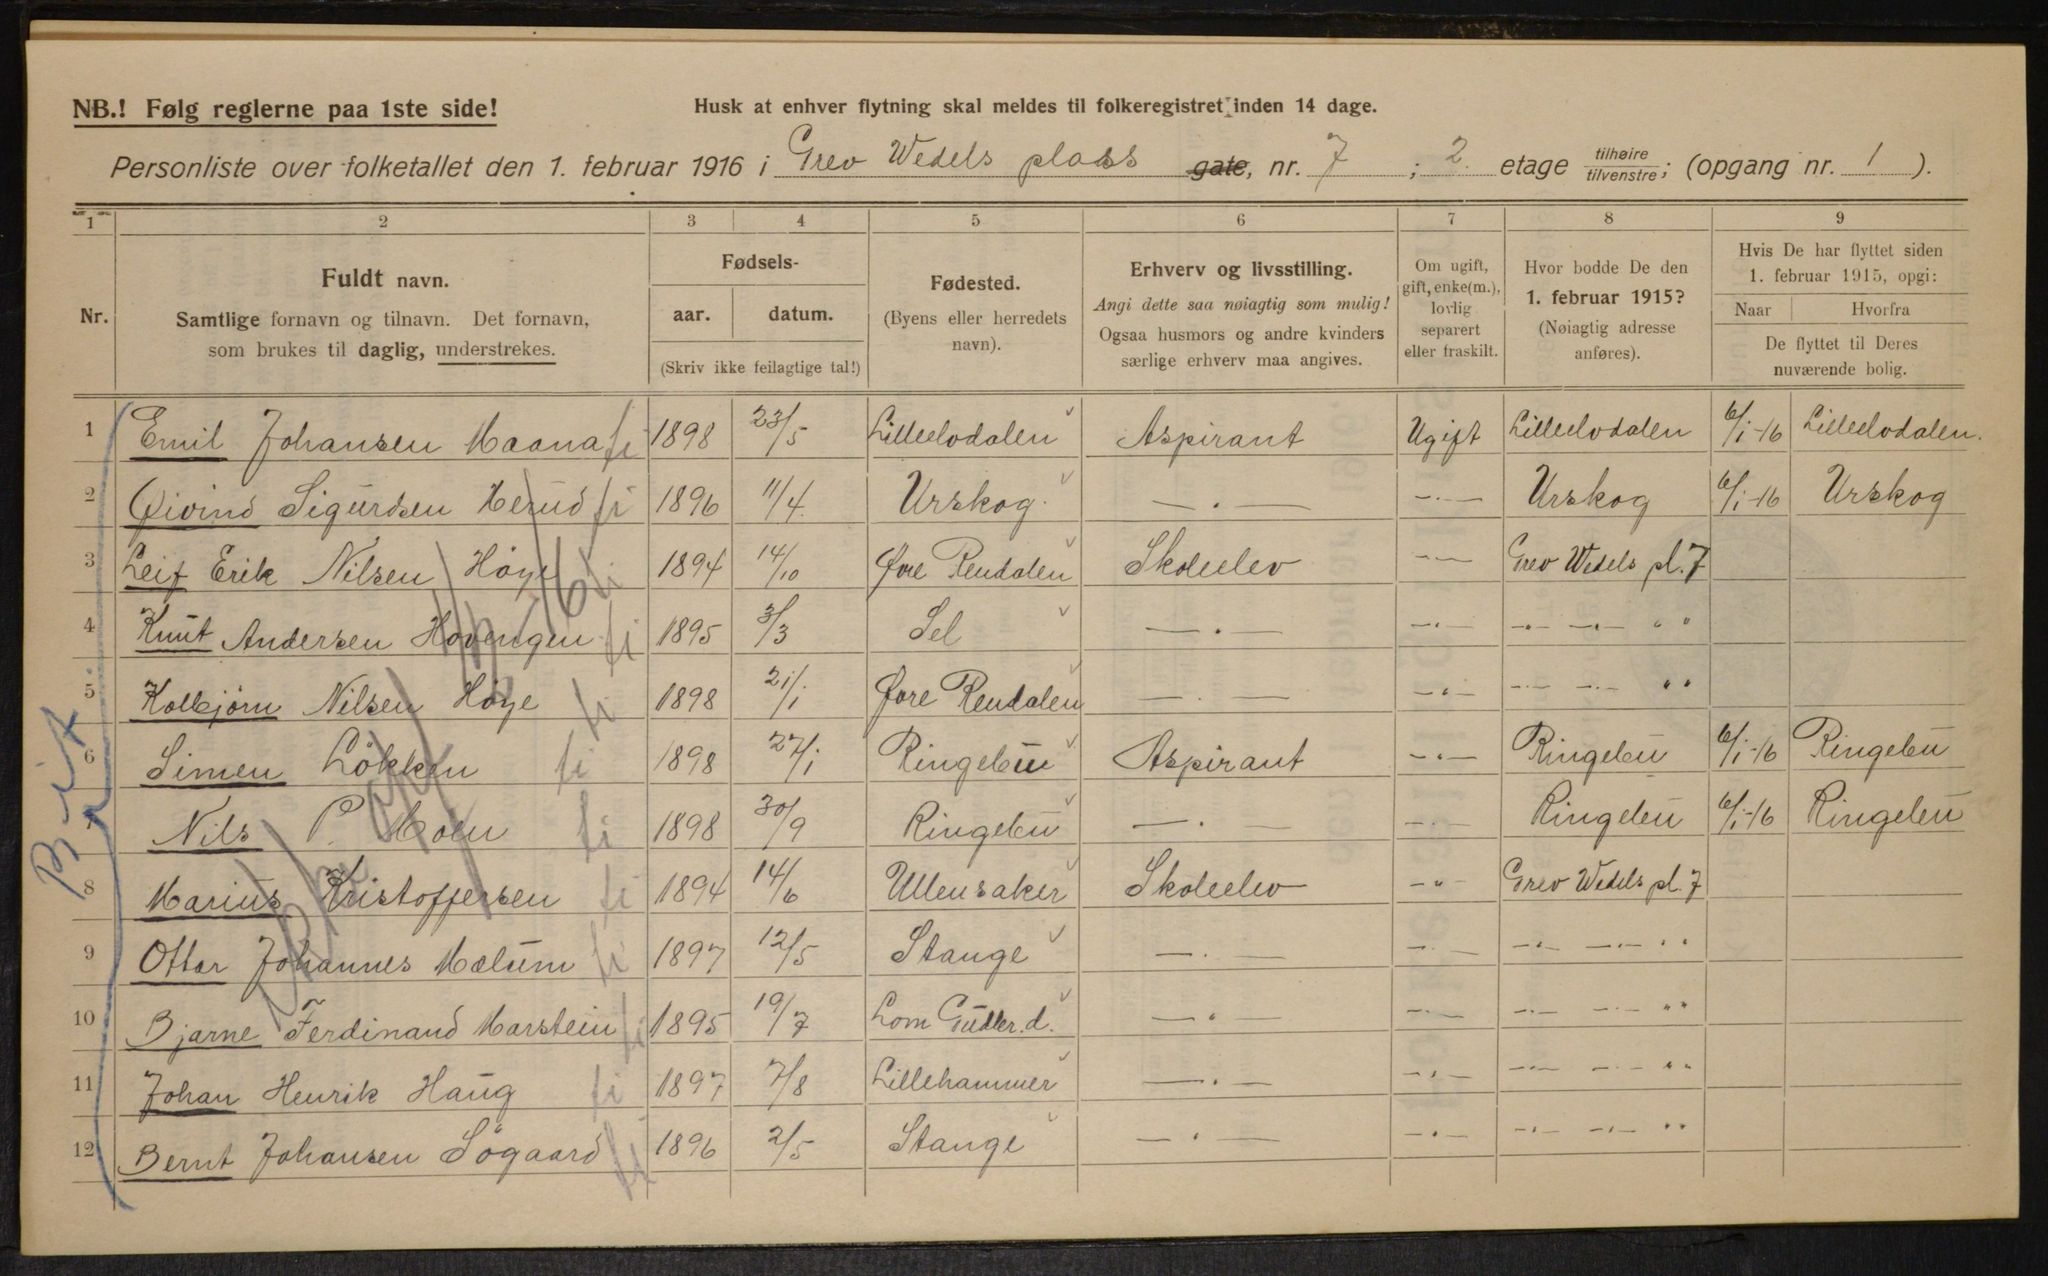 NB.! Følg reglerne paa 1ste side!
Husk at enhver flytning skal meldes til folkeregistret inden 14 dage.
Personliste over folketallet den 1. februar 1916 i Grev Wedels plass gate, nr. 7 ; 2. etage tilhøire tilvenstre ; (opgang nr. 1 ).
1 2 3 4 5 6 7 8 9
Nr.
Fuldt navn.
Samtlige fornavn og tilnavn. Det fornavn,
som brukes til daglig, understrekes.
Fødsels-
aar. datum.
(Skriv ikke feilagtige tal!)
Fødested.
(Byens eller herredets
navn).
Erhverv og livsstilling.
Angi dette saa nøiagtig som mulig!
Ogsaa husmors og andre kvinders
særlige erhverv maa angives.
Om ugift,
gift, enke(m.),
lovlig
separert
eller fraskilt.
Hvor bodde De den
1. februar 1915?
(Nøiagtig adresse
anføres).
Hvis De har flyttet siden
1. februar 1915, opgi:
Naar Hvorfra
De flyttet til Deres
nuværende bolig.
1 Emil Johansen Maana fi 1898 23/5 Lilleelvdalen Aspirant Ugift Lilleelvdalen 6/1-16 Lilleelvdalen.
2 Øivind Sigurdsen Herud fi 1896 11/4. Urskog. —.— —.— Urskog 6/1-16 Urskog
3 Leif Erik Nilsen Höye fi 1894 14/10 Øvre Rendalen Skoleelev —— Grev Wedels pl. 7
4 Knut Andersen Hovengen fi 1895 3/3 Sel —.— —.— —.— —.— " "
5 Kolbjörn Nilsen Höye fi 1898 21/1 Øvre Rendalen —.— —.— —.— —.— " "
6 Simen Lökken fi 1898 27/1 Ringebu Aspirant —.— Ringebu 6/1-16 Ringebu
7 Nils P. Moen fi 1898 30/9 Ringebu —.— —.— Ringebu 6/1-16 Ringebu
8 Marius Kristoffersen fi 1894 14/6 Ullensaker Skoleelev —"— Grev Wedels pl. 7
9 Ottar Johannes Mælum fi 1897 12/5 Stange —.— —.— —.— —.— " "
10 Bjarne Ferdinand Marstein fi 1895 19/7 Lom Gudbr.d. —.— —.— —.— —.— " "
11 Johan Henrik Haug fi 1897 7/8 Lillehammer —.— —.— —.— —.— " "
12 Bernt Johansen Sögaard fi 1896 2/5 Stange —.— —.— —.— —.— " "